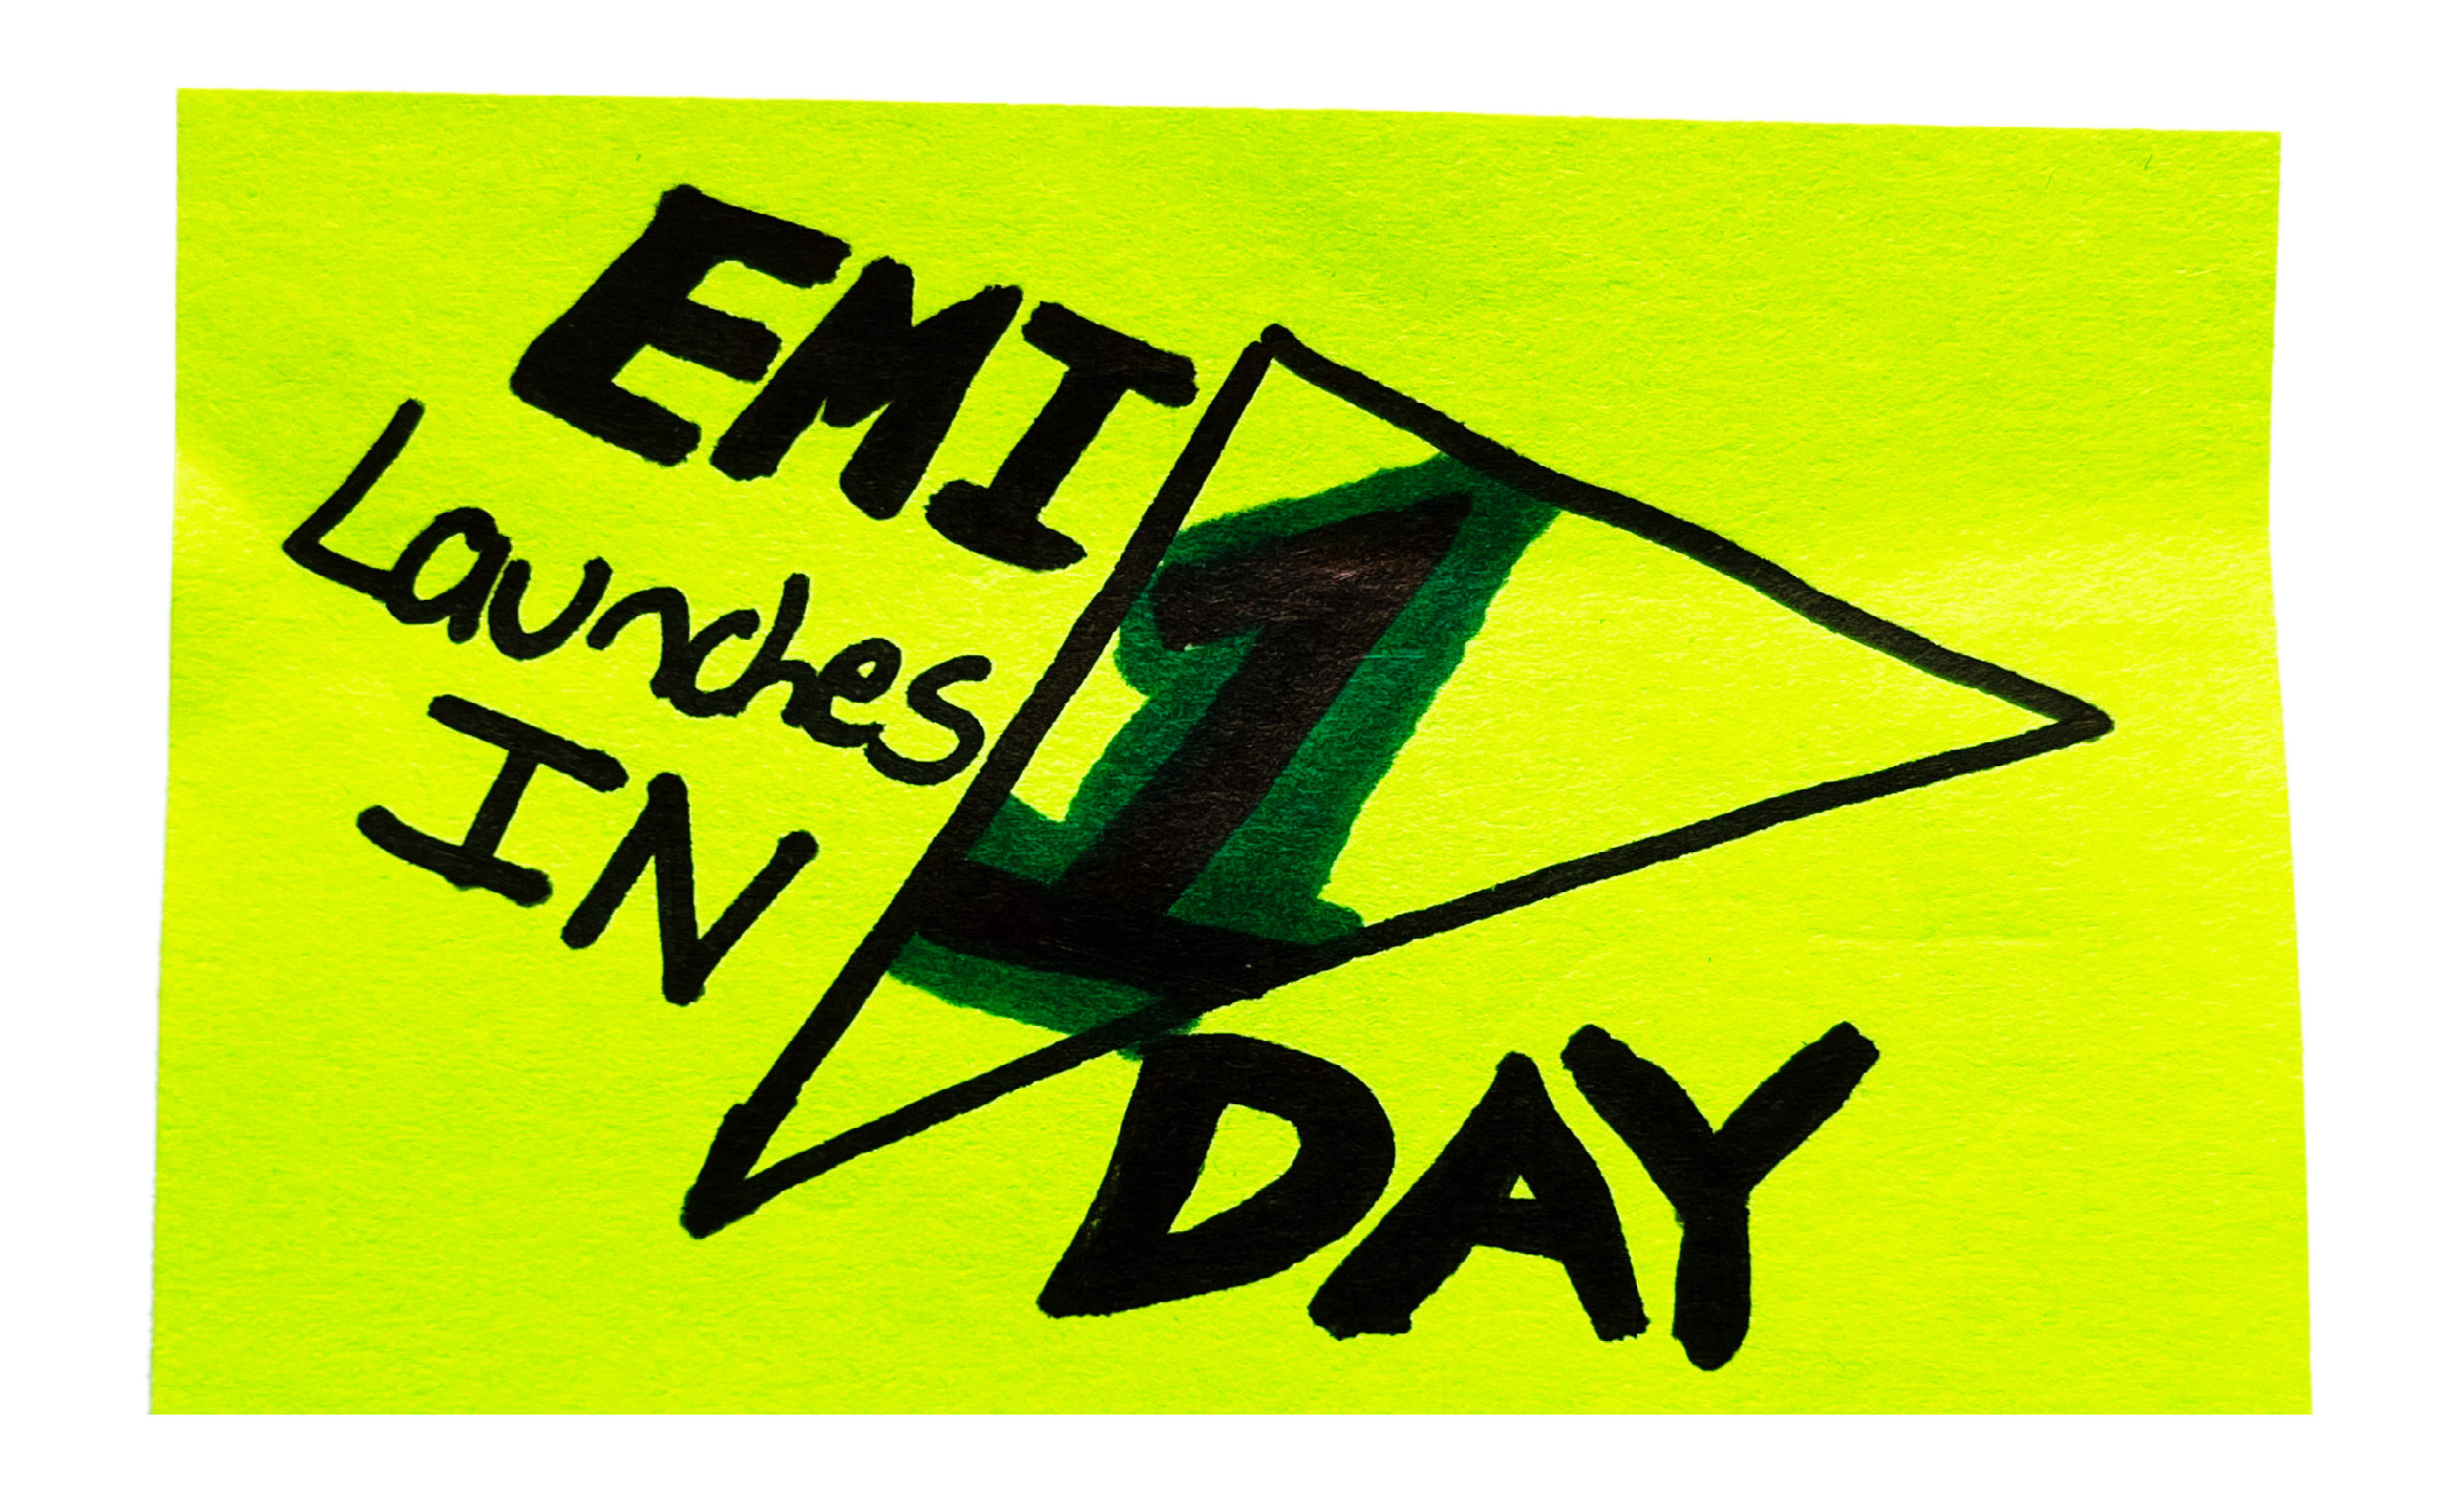 EMI
Launches
IN
1
DAY